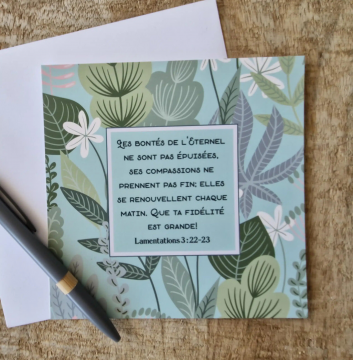 Les bontés de l'Eternel
ne sont pas épuisées,
ses compassions ne
prennent pas fin; elles
se renouvellent chaque
matin. Que ta fidélité
est grande!
Lamentations 3:22-23